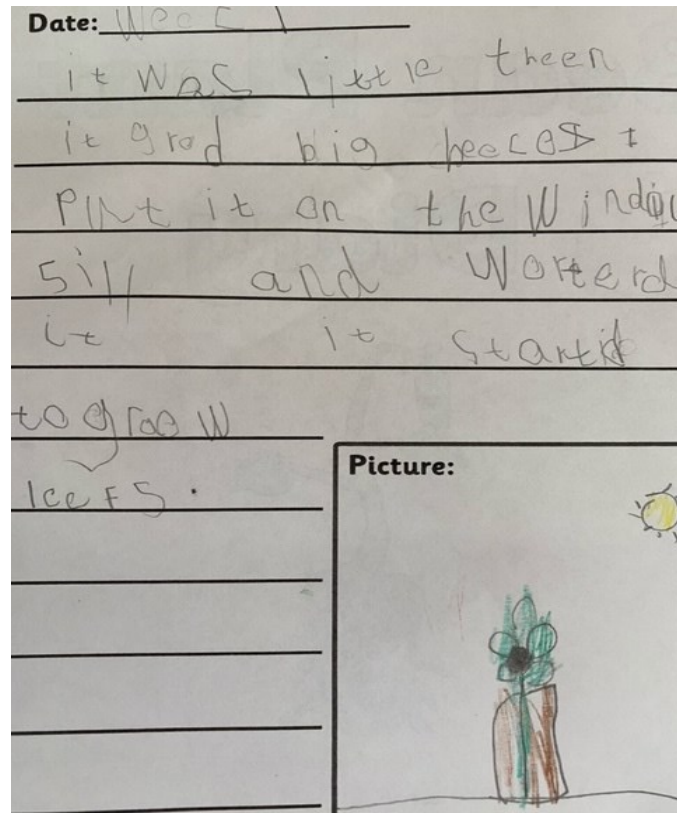 Date: Weec 1
it was little theen
it grod big beeces I
Put it on the Window
Sill and Worterd
it it Startid
to groo W
leefs.
Picture: